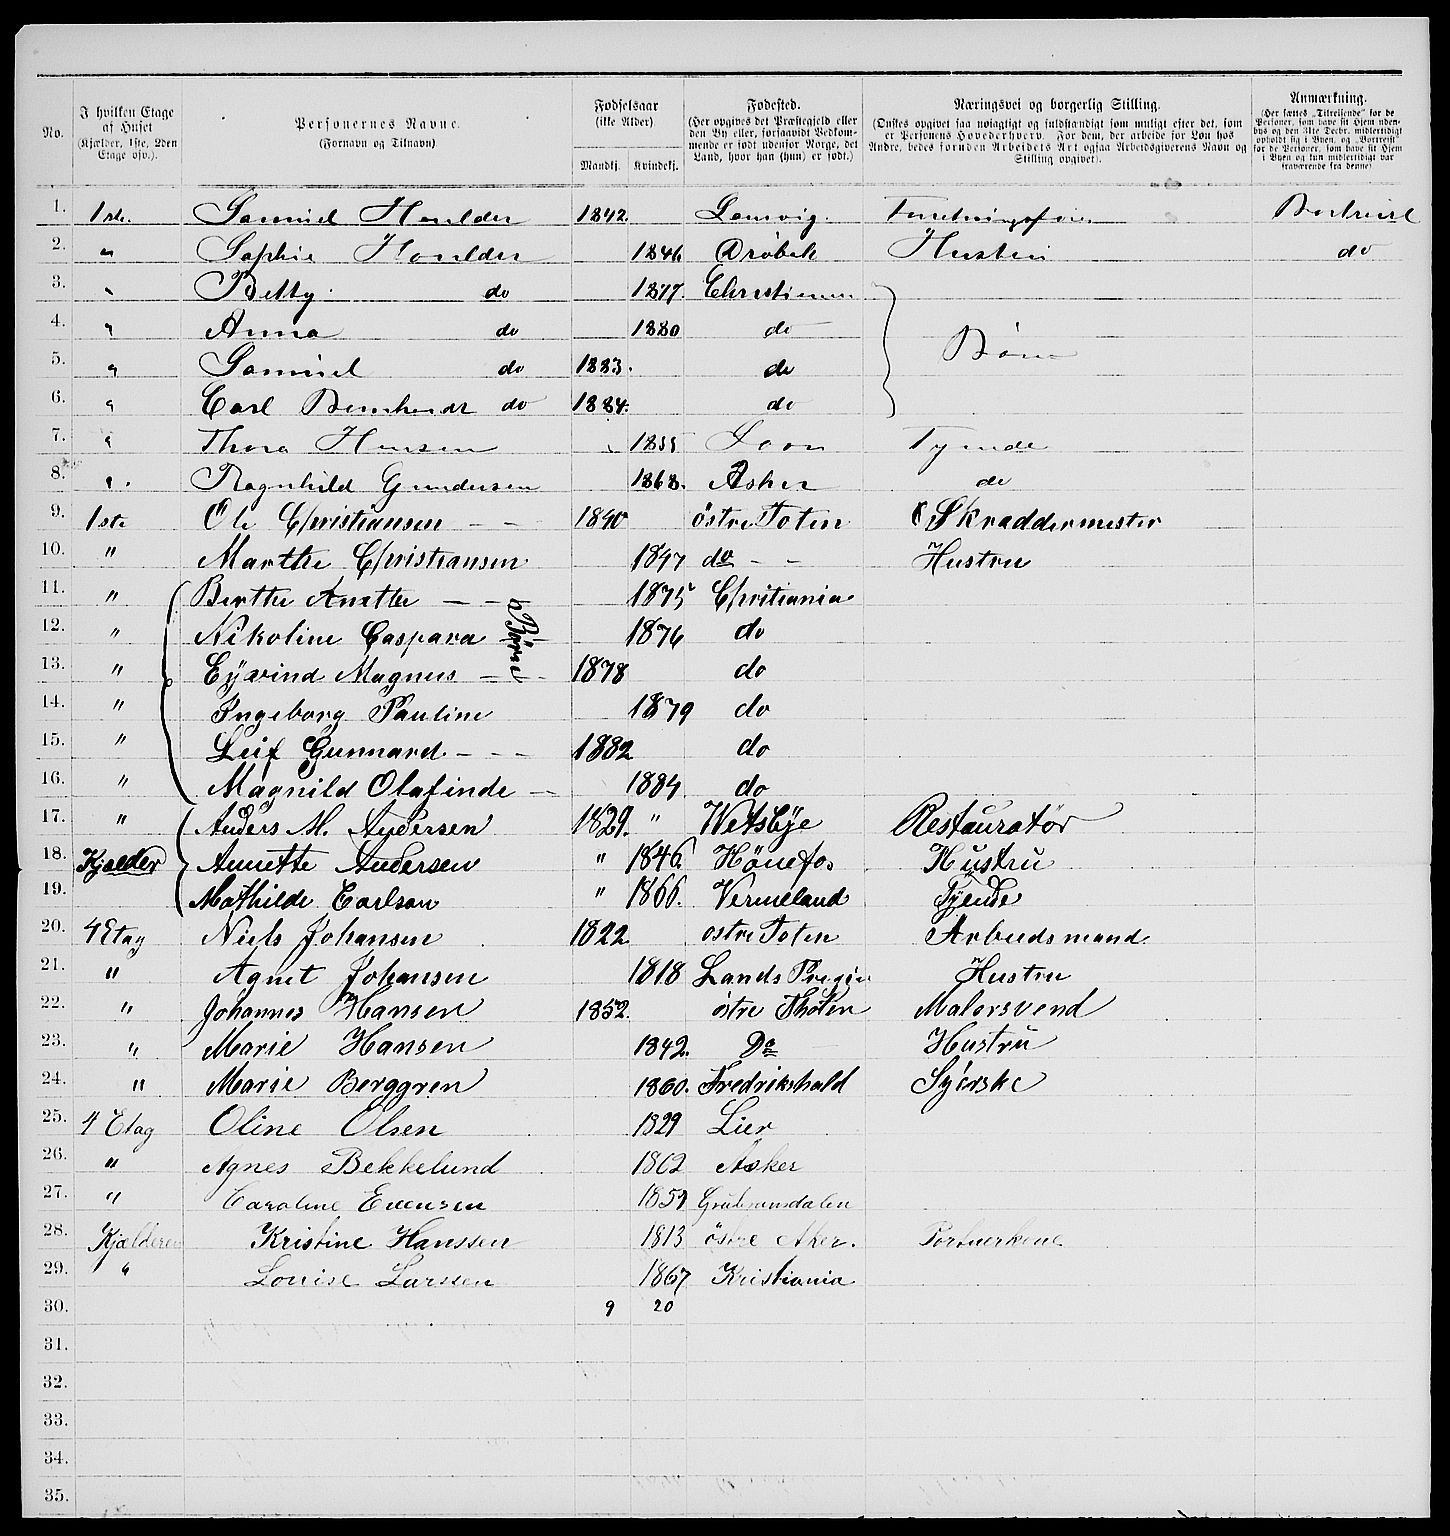 No. I hvilken Etage af Huset (Kjælder, 1ste, 2den Etage osv.). Personernes Navne. (Fornavn og Tilnavn) Fødselsaar (ikke Alder) Mandkj. Kvindekj. Fødested. (Her opgives det Præstegjeld eller den By eller, forsaavidt Vedkommende er født udenfor Norge, det Land, hvor han (hun) er født.) Næringsvei og borgerlig Stilling. (Ønskes opgivet saa nøiagtigt og fuldstændigt som muligt efter det, som er Personens Hovederhverv. For dem, der arbeide for Løn hos Andre, bedes foruden Arbeidets Art ogsaa Arbeidsgiverens Navn og Stilling opgivet). Anmærkning. (Her sættes „Tilreisende“ for de Personer, som have sit Hjem udenbys og den 31te Decbr. midlertidigt opholdt sig i Byen, og „Bortreist“ for de Personer, som have sit Hjem i Byen og kun midlertidigt var fraværende fra denne)
1. 1ste. Samuel Houlder 1842. Forretningsfører Bortreist
2. " Sophie Houlder 1846 Drøbak Hustru do
3. " Betty do 1877. Christiania
4. " Anna do 1880 do Børn
5. " Samuel do 1883. do
6. " Carl Bernhardt do 1884. do
7. " Thora Hansen 1855 Tjende
8. " Ragnhild Gundersen 1868. Asker do
9. 1ste Ole Christiansen - - 1840 østre Toten Skraddermester
10. " Marthe Christiansen 1847 do - - Hustru
11. " Berthe Anette - - Børn 1875 Christiania
12. " Nikoline Caspara 1876 do
13. " Eyvind Magnus - - 1878 do
14. " Ingeborg Pauline 1879 do
15. " Leif Gunnard. - - - 1882 do
16. " Magnild Olafinde - 1884 do
17. " Anders M. Andersen 1829. " Wetsbye Restauratør
18. Kjælder Annette Andersen " 1846. Hönefos Hustru
19. Mathilde Carlson " 1866. Vermeland Tjende
20. 4 Etag Niels Johansen 1822 ostre Toten Arbeidsmand
21. " Agnet Johansen 1818 Lands Hustru
22. " Johannes Hansen 1852. östre Thoten Malersvend
23. " Marie Hansen 1842. Do Hustru
24. " Marie Berggren 1860. Fredrikshald Syerske
25. 4 Etag Oline Olsen 1829 Lier
26. " Agnes Bekkelund 1862 Asker
27. " Caroline Evensen 1859 Gudbransdalen
28. Kjælderen Kristine Hanssen 1813 østre Aker. Portnerkone
29. " Louise Larssen 1867 Kristiania
30. 9 20
31.
32.
33.
34.
35.